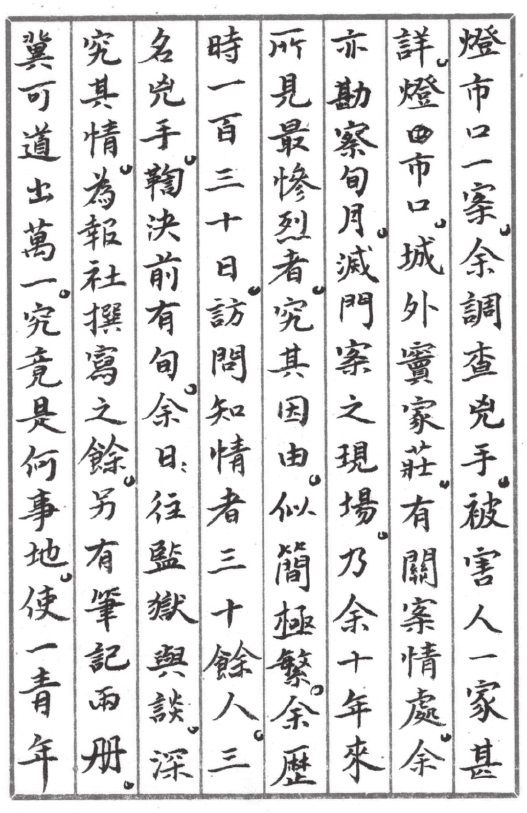 燈市口一案。余調查兇手。被害人一家甚
詳。燈市口。城外竇家莊。有關案情處。余
亦勘察旬月。滅門案之現場。乃余十年來
所見最慘烈者。究其因由。似簡極繁。余歷
時一百三十日。訪問知情者三十餘人。三
名兇手。鞫決前有旬。余日々往監獄與談。深
究其情。為報社撰寫之餘。另有筆記兩冊。
冀可道出萬一。究竟是何事地。使一青年